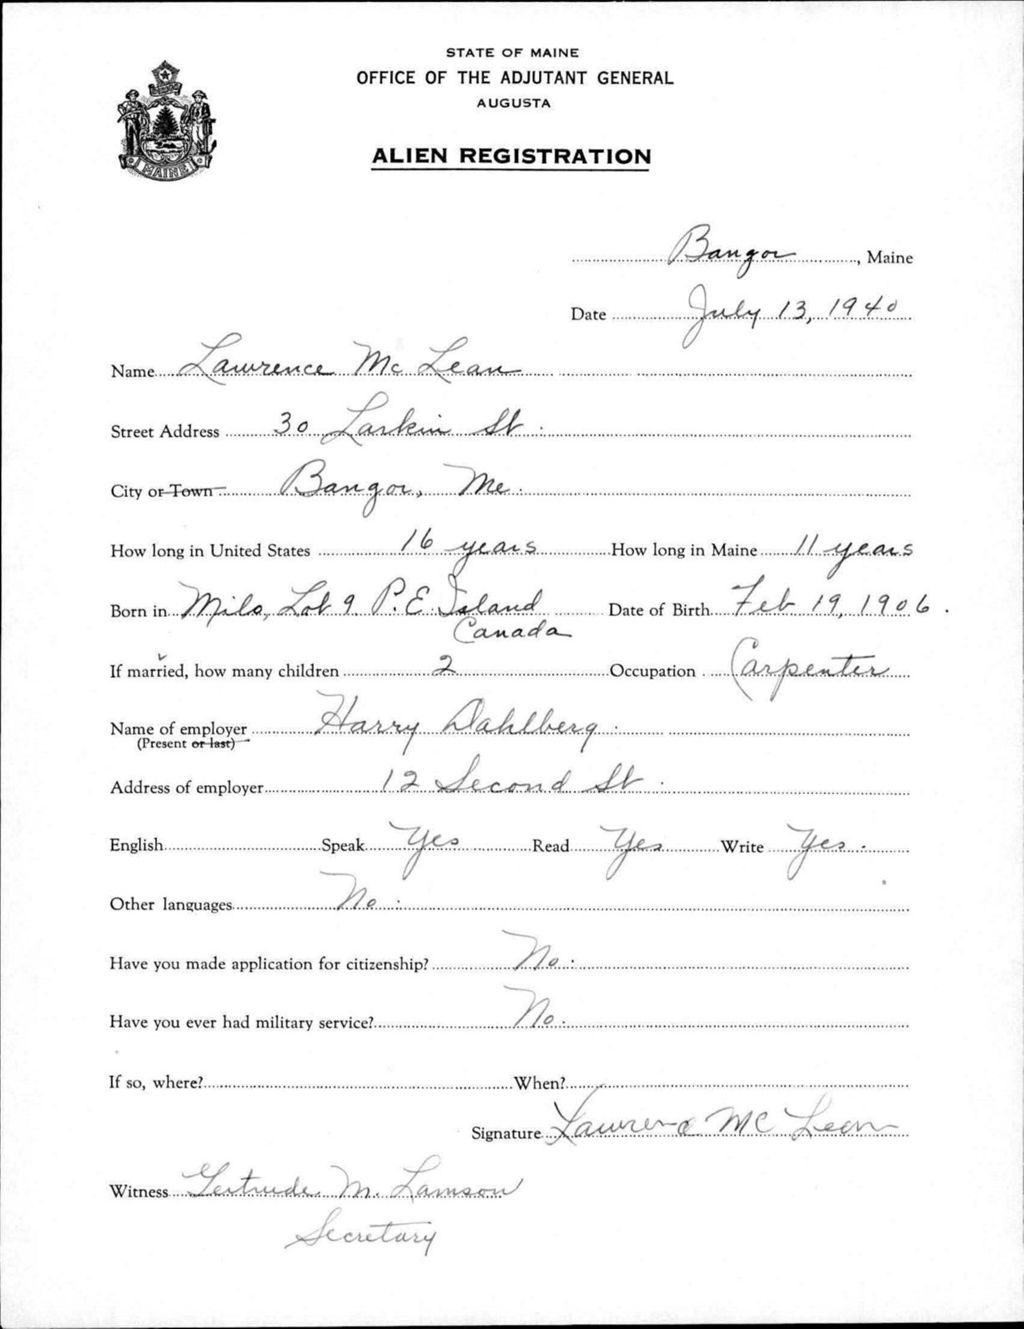 STATE OF MAINE
OFFICE OF THE ADJUTANT GENERAL
AUGUSTA
MAINE
ALIEN REGISTRATION
Bangor, Maine
Date July 13, 1940
Name Lawrence Mc Lean
Street Address 30 Larkin St.
City or Town Bangor, Me.
How long in United States 16 years How long in Maine 11 years
Born in Milo, Lot 9 P.E. Island Date of Birth Feb 19, 1906.
Canada
If married, how many children 2 Occupation Carpenter
Name of employer Harry Dahlberg.
(Present or last)
Address of employer 12 Second St.
English Speak Yes Read Yes Write Yes.
Other languages No.
Have you made application for citizenship? No.
Have you ever had military service? No.
If so, where? When?
Signature Lawrence Mc Lean
Witness Gertrude M. Lamson
Secretary